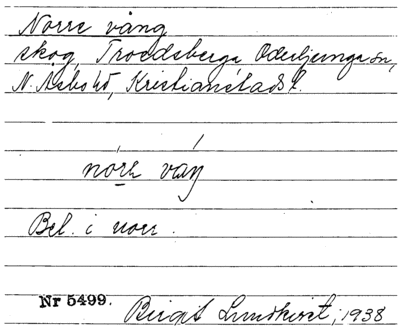 Norre vång
skog, Troedsberga, Oderljunga sn,
N. Åsbo hd, Kristianstads l.
nórr váŋ
Bel. i norr.
Nr 5499. Birgit Lundkvist, 1938